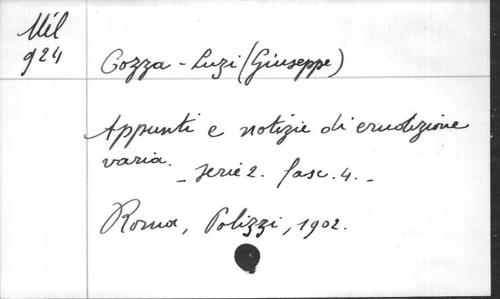 Mil
924
Cozza-Luzi (Giuseppe)
Appunti e notizie di erudizione
varia.
- serie 2. fasc. 4. -
Roma, Polizzi, 1902.